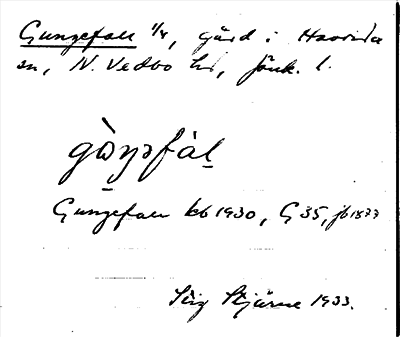 Gungefall 1/4, gård i Haurida
sn, N. Vedbo hd, Jönk. l.
gò̱ŋəfàḻ
Gungefall kb 1930, G 35, jb 1877
Stig Stjärne 1933.